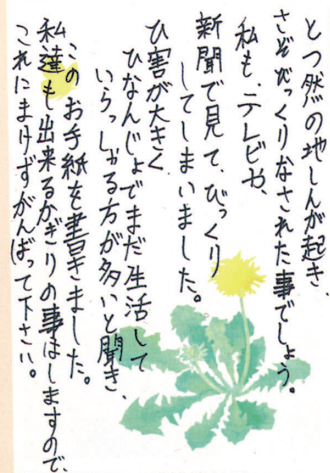 とつ然の地しんが起き、
さぞびっくりなされた事でしょう。
私も、テレビや、
新聞で見て、びっくり
してしまいました。
ひ害が大きく
ひなんじょでまだ生活して
いらっしゃる方が多いと聞き、
このお手紙を書きました。
私達も出来るかぎりの事はしますので、
これにまけずがんばって下さい。